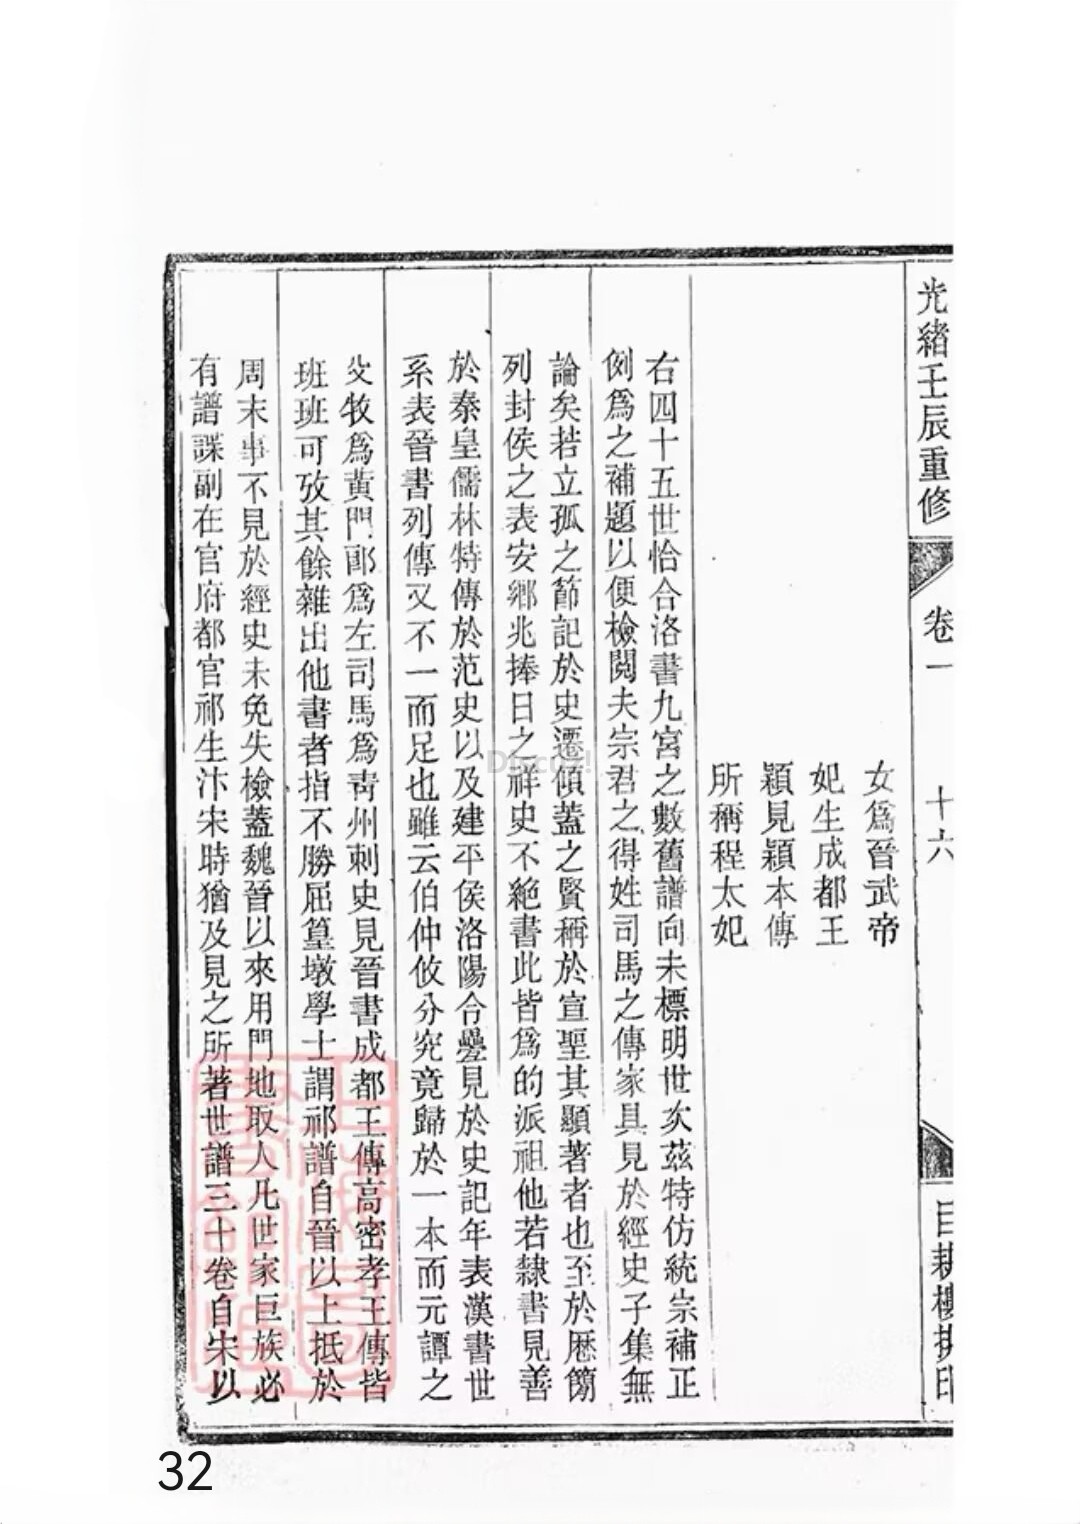 光緒壬辰重修
卷一
十六
目耕樓排印
女爲晉武帝
妃生成都王
穎見穎本傳
所稱程太妃
右四十五世恰合洛書九宮之數舊譜向未標明世次茲特仿統宗補正
例爲之補題以便檢閱夫宗君之得姓司馬之傳家具見於經史子集無
論矣若立孤之節記於史遷傾蓋之賢稱於宣聖其顯著者也至於厯簡
列封侯之表安鄉兆捧日之祥史不絶書此皆爲的派祖他若隸書見善
於秦皇儒林特傳於范史以及建平侯洛陽令疊見於史記年表漢書世
系表晉書列傳又不一而足也雖云伯仲攸分究竟歸於一本而元譚之
父牧爲黃門郎爲左司馬爲靑州刺史見晉書成都王傳高密孝王傳皆
班班可攷其餘雜出他書者指不勝屈篁墩學士謂祁譜自晉以上抵於
周末事不見於經史未免失檢蓋魏晉以來用門地取人凡世家巨族必
有譜諜副在官府都官祁生汴宋時猶及見之所著世譜三十卷自宋以
Discuz!
32